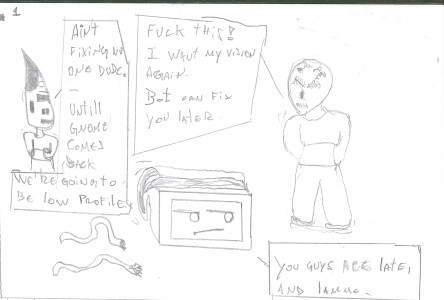 1
Ain't
Fixing no
one dude.
—
Untill
Gnome
comes
back
We're going to
be low profile
Fuck this!
I want my vision
again.
Bot can fix
you later.
You guys are late,
and